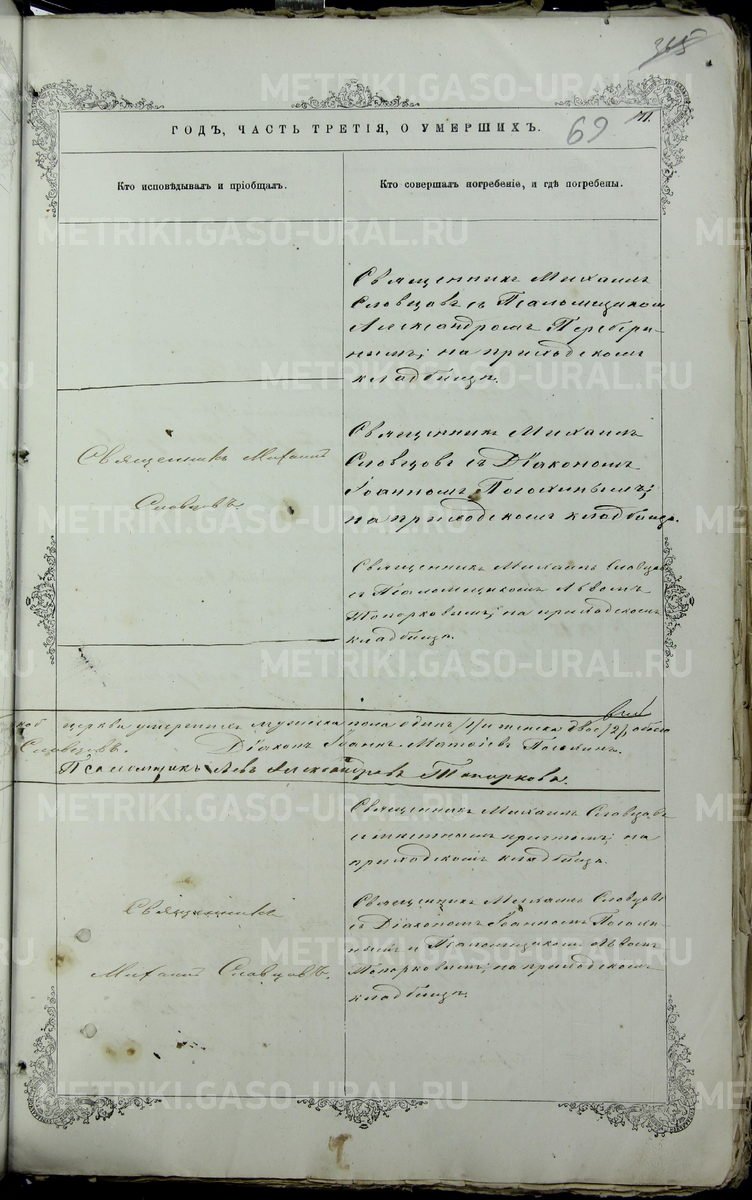 365
69
71.
ГОДЪ, ЧАСТЬ ТРЕТІЯ, О УМЕРШИХЪ.
Кто исповѣдывалъ и пріобщалъ.
Кто совершалъ погребеніе, и гдѣ погребены.
Священникъ Михаилъ
Словцовъ съ Псаломщикомъ
Александромъ Перебери-
нымъ; на приходскомъ
кладбищѣ.
Священникъ Михаилъ
Словцовъ.
Священникъ Михаилъ
Словцовъ съ Діакономъ
Іоанномъ Погохинымъ;
на приходскомъ кладбищѣ.
Священникъ Михаилъ Словцо
съ Псаломщикомъ Львомъ
Топорковымъ; на приходскомъ
кладбищѣ.
церкви умершихъ мужеска пола одинъ /1/ и женска двое /2/, обоего
Словцовъ. Діаконъ Іоаннъ Матѳіевъ
Псаломщикъ Левъ Александровъ Топорковъ.
Священникъ Михаилъ Словцовъ
съ причтомъ; на
приходскомъ кладбищѣ.
Священникъ
Михаилъ Словцовъ.
Священникъ Михаилъ Словцовъ
съ Діакономъ Іоанномъ Погохи-
нымъ и Псаломщикомъ Львомъ
Топорковымъ; на приходскомъ
кладбищѣ.
METRIKI.GASO-URAL.RU